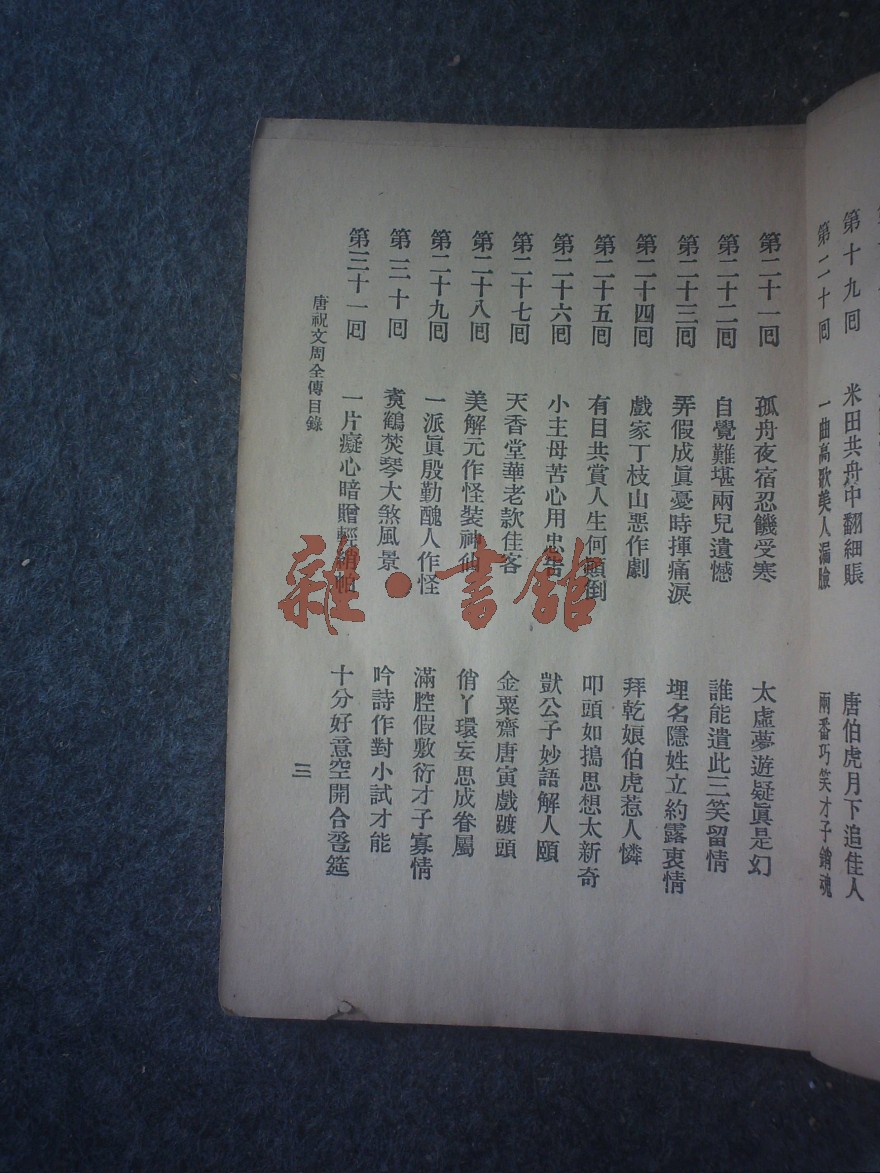 第十九回 米田共舟中翻細賬 唐伯虎月下追佳人
第二十回 一曲高歌美人漏臉 兩番巧笑才子銷魂
第二十一回 孤舟夜宿忍饑受寒 太虛夢遊疑眞是幻
第二十二回 自覺難堪兩兒遺憾 誰能遣此三笑留情
第二十三回 弄假成眞憂時揮痛淚 埋名隱姓立約露衷情
第二十四回 戲家丁枝山惡作劇 拜乾娘伯虎惹人憐
第二十五回 有目共賞人生何顚倒 叩頭如搗思想太新奇
第二十六回 小主母苦心用忠告 獃公子妙語解人頤
第二十七回 天香堂華老款佳客 金粟齋唐寅戲踱頭
第二十八回 美解元作怪裝神仙 俏丫環妄思成眷屬
第二十九回 一派眞殷勤醜人作怪 滿腔假敷衍才子寡情
第三十回 煑鶴焚琴大煞風景 吟詩作對小試才能
第三十一回 一片癡心暗贈輕綃帕 十分好意空開合卺筵
唐祝文周全傳目錄
三
雜·書館